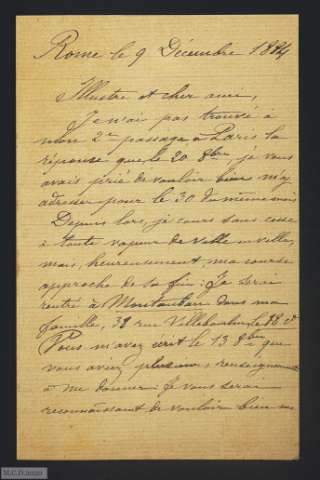 Rome le 9 Décembre 1884
Illustre et cher ami,
Je n'ai pas trouvé à
notre 2e passage à Paris la
réponse que le 20 8bre, je vous
avais prié de vouloir bien m'y
adresser pour le 30 du même mois
Depuis lors, je cours sans cesse
à toute vapeur de ville en ville,
mais, heureusement, ma course
approche de sa fin. Je serai
rentré à Montauban dans ma
famille, 32 rue Villebourbon, le 22 ct
Vous m'avez écrit le 13 8bre que
vous aviez plusieurs renseignements
à me donner. Je vous serai
reconnaissant de vouloir bien me